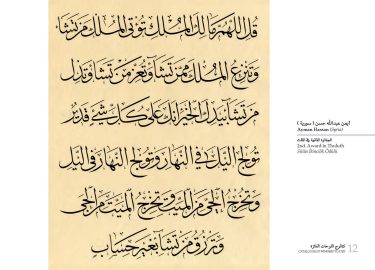 قل اللهم مالك الملك تؤتي الملك من تشا
وتنزع الملك ممن تشا وتعز من تشا وتذل
من تشا بيدك الخير انك على كل شيء قدير
تولج اليل في النهار وتولج النهار في اليل
وتخرج الحي من الميت وتخرج الميت من الحي
وترزق من تشا بغير حساب
أيمن عبدالله حسن ( سورية )
Ayman Hassan (Syria)
الجائزة الثانية في الثلث
2nd. Award in Thuluth
Sülüs İkincilik Ödülü
كتالوج اللوحات الفائزة
CATALOGUE OF WINNERS' PLATES
12